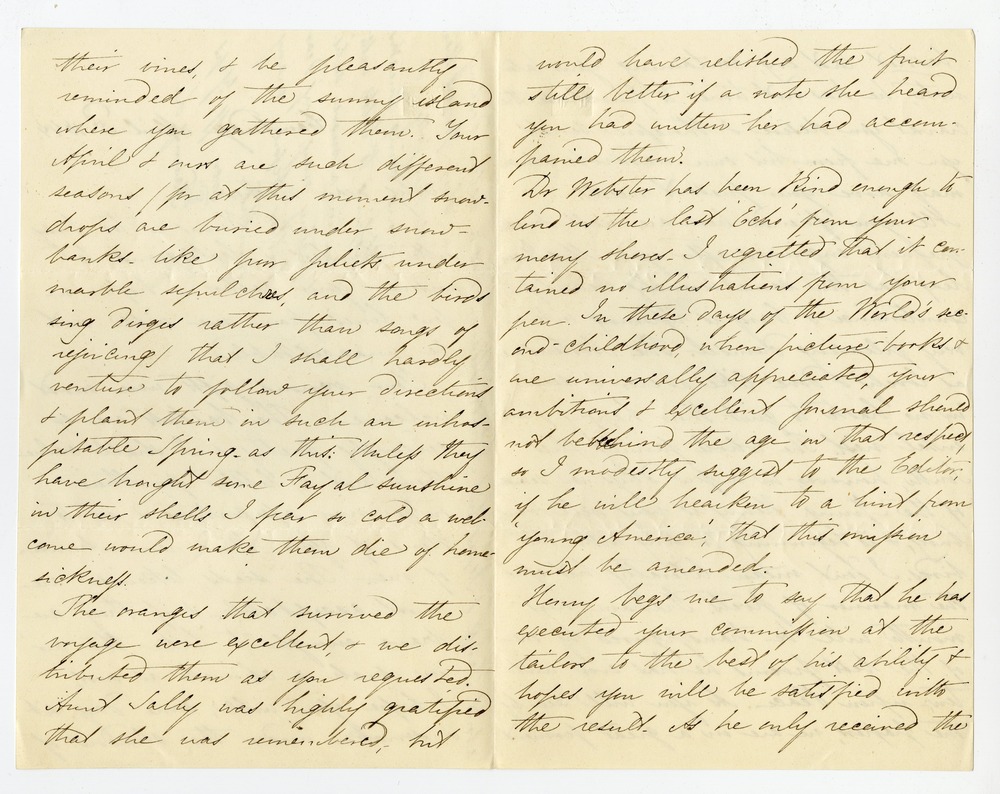 their vines, & be pleasantly
reminded of the sunny island
where you gathered them. Your
April & ours are such different
seasons (for at this moment snow-
drops are buried under snow-
banks like poor Juliets under
marble sepulchres, and the birds
sing dirges rather than songs of
rejoicing) that I shall hardly
venture to follow your directions
& plant them in such an inhos-
pitable Spring as this: Unless they
have bought some Fayal sunshine
in their shells I fear so cold a wel-
come would make them die of home-
sickness.
The oranges that survived the
voyage were excellent, & we dis-
tributed them as you requested.
Aunt Sally was highly gratified
that she was remembered, but
would have relished the fruit
still better if a note she heard
you had written her had accom-
panied them.
Dr Webster has been kind enough to
lend us the last 'Echo' from your
merry shores. I regretted that it con-
tained no illustrations from your
pen. In these days of the World's sec-
ond-childhood, when picture-books &
are universally appreciated, your
ambitious & excellent Journal should
not be behind the age in that respect,
so I modestly suggest to the Editor,
if he will hearken to a hint from
'young America', that this omission
must be amended.
Henry begs me to say that he has
executed your commission at the
tailors to the best of his ability &
hopes you will be satisfied with
the result. As he only received the